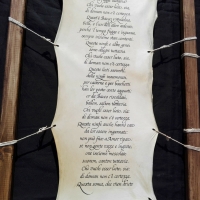 che si fugge tuttavia!
Chi vuole esser lieto, sia,
di doman non c'è certezza.
Quest'è Bacco e Arianna,
belli, e l'un dell'altro ardenti;
perché 'l tempo fugge e inganna,
sempre insieme stan contenti.
Queste ninfe e altre genti
sono allegre tuttavia.
Chi vuole esser lieto, sia,
di doman non c'è certezza.
Questi lieti satiretti,
delle ninfe innamorati,
per caverne e per boschetti
han lor posto cento agguati;
or da Bacco riscaldati,
ballon, salton tuttavia.
Chi vuole esser lieto, sia,
di doman non c'è certezza.
Queste ninfe anche hanno caro
da lor essere ingannate;
non può fare a Amor riparo,
se non gente rozze e ingrate;
ora insieme mescolate
suonon, canton tuttavia.
Chi vuole esser lieto, sia,
di doman non c'è certezza.
Questa soma, che vien drieto